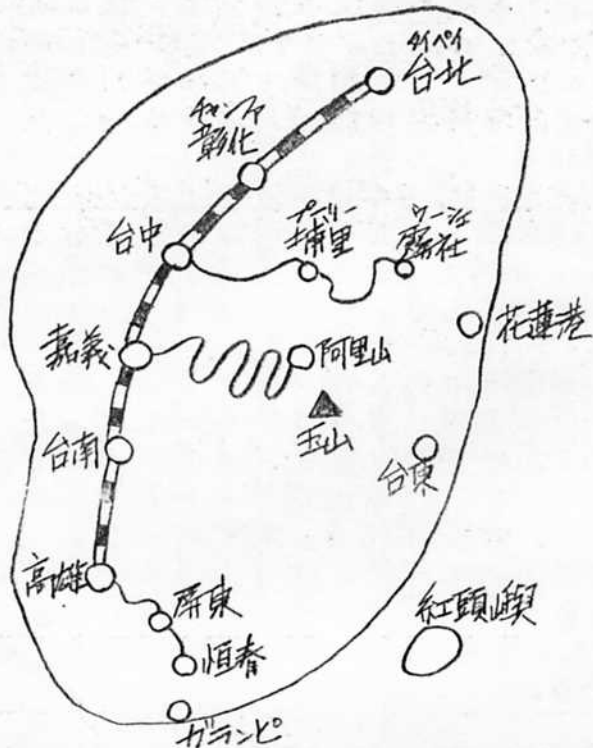 タイペイ
台北
チャンファ
彰化
台中
プーリー
埔里
ウーシェ
霧社
花蓮港
嘉義
阿里山
玉山
台南
台東
高雄
屏東
紅頭嶼
恒春
ガランピ